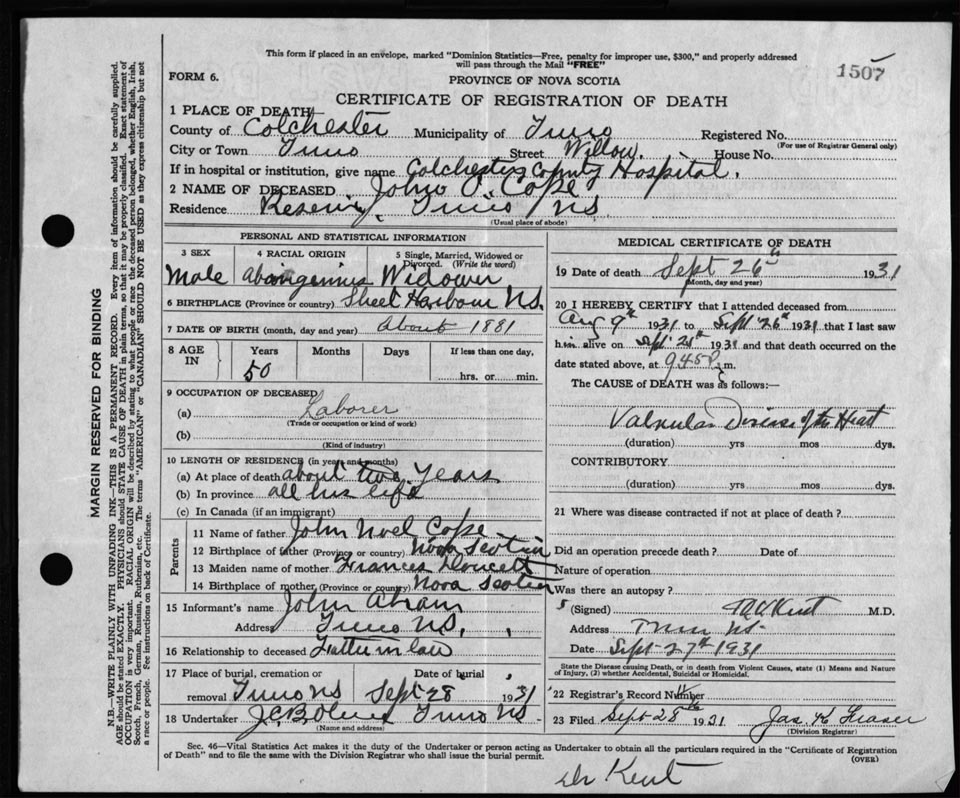 This form if placed in an envelope, marked "Dominion Statistics—Free, penalty for improper use, $300," and properly addressed
will pass through the Mail "FREE"
1507
FORM 6.
PROVINCE OF NOVA SCOTIA
CERTIFICATE OF REGISTRATION OF DEATH
1 PLACE OF DEATH
County of Colchester Municipality of Truro Registered No.
(For use of Registrar General only)
City or Town Truro Street Willow. House No.
If in hospital or institution, give name Colchester County Hospital.
2 NAME OF DECEASED John J. Cope
Residence Reserve, Truro NS
(Usual place of abode)
PERSONAL AND STATISTICAL INFORMATION
3 SEX
4 RACIAL ORIGIN
5 Single, Married, Widowed or
Divorced. (Write the word)
Male Widower
6 BIRTHPLACE (Province or country) Sheet Harbour N.S.
7 DATE OF BIRTH (month, day and year) about 1881
8 AGE IN
Years Months Days If less than one day,
50 hrs. or min.
9 OCCUPATION OF DECEASED
(a) Laborer
(Trade or occupation or kind of work)
(b)
(Kind of industry)
10 LENGTH OF RESIDENCE (in years and months)
(a) At place of death about two years
(b) In province all his life
(c) In Canada (if an immigrant)
Parents
11 Name of father John Noel Cope
12 Birthplace of father (Province or country) Nova Scotia
13 Maiden name of mother Frances Doucett
14 Birthplace of mother (Province or country) Nova Scotia
15 Informant's name John Abram
Address Truro N.S.
16 Relationship to deceased Father in law
17 Place of burial, cremation or Date of burial
removal Truro NS Sept 28 1931
18 Undertaker Truro NS
(Name and address)
MEDICAL CERTIFICATE OF DEATH
19 Date of death Sept 26th 1931
(Month, day and year)
20 I HEREBY CERTIFY that I attended deceased from
Aug 9th 1931 to Sept 26th 1931 that I last saw
him alive on Sept 1931 and that death occurred on the
date stated above, at 9.45 P. m.
The CAUSE of DEATH was as follows:—
Valvular Disease of the Heart
(duration) yrs mos dys.
CONTRIBUTORY
(duration) yrs. mos. dys.
21 Where was disease contracted if not at place of death?
Did an operation precede death? Date of
Nature of operation
Was there an autopsy?
(Signed) Kent M.D.
Address Truro NS
Date Sept 27th 1931
State the Disease causing Death, or in death from Violent Causes, state (1) Means and Nature
of Injury, (2) whether Accidental, Suicidal or Homicidal.
22 Registrar's Record Number
23 Filed Sept 28 1931 Jas. K Fraser
(Division Registrar)
Sec. 46—Vital Statistics Act makes it the duty of the Undertaker or person acting as Undertaker to obtain all the particulars required in the "Certificate of Registration
of Death" and to file the same with the Division Registrar who shall issue the burial permit. (OVER)
Dr Kent
MARGIN RESERVED FOR BINDING
N.B.—WRITE PLAINLY WITH UNFADING INK—THIS IS A PERMANENT RECORD. Every item of information should be carefully supplied.
AGE should be stated EXACTLY. PHYSICIANS should STATE CAUSE OF DEATH in plain terms, so that it may be properly classified. Exact statement of
OCCUPATION is very important. RACIAL ORIGIN will be described by stating to what people or race the deceased person belonged, whether English, Irish,
Scotch, French, German, Russian, Ruthenian, etc. The terms "AMERICAN" or "CANADIAN" SHOULD NOT BE USED as they express citizenship but not
a race or people. See instructions on back of Certificate.